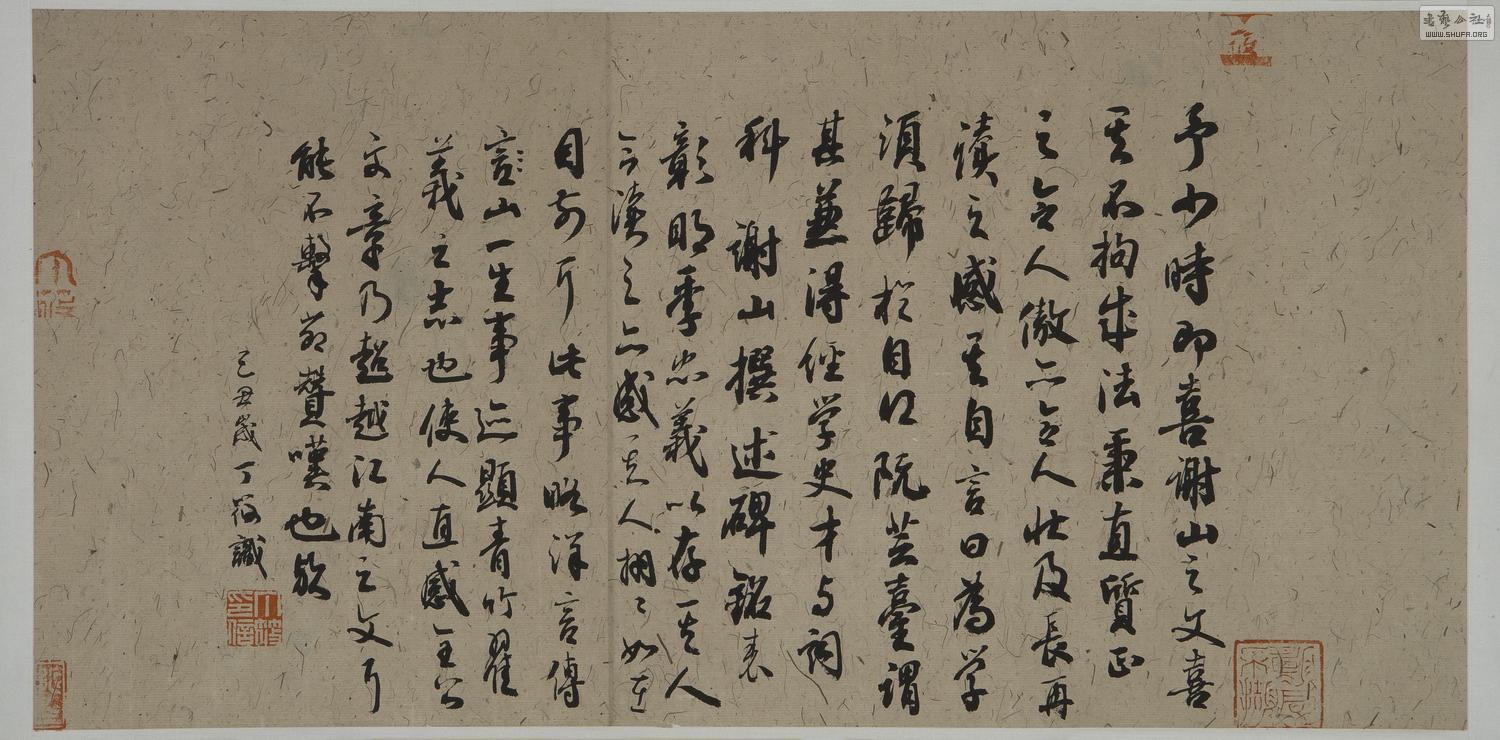 予少時即喜謝山之文喜
其不拘成法秉直質正
之令人傲亦令人壯及長再
讀之感其自言曰為學
須歸於自得阮芸臺謂
其兼得經學史才与詞
科謝山撰述碑銘表
彰明季忠義以存其人
今讀之亦感其人栩々如在
目前耳此事略洋言傳
謝山一生事迹顯青竹翟
義之志也使人直感全公
文章乃超越江南之文耳
能不擊節贊嘆也歟
己丑歲丁筱識
書藝公社
WWW.SHUFA.ORG